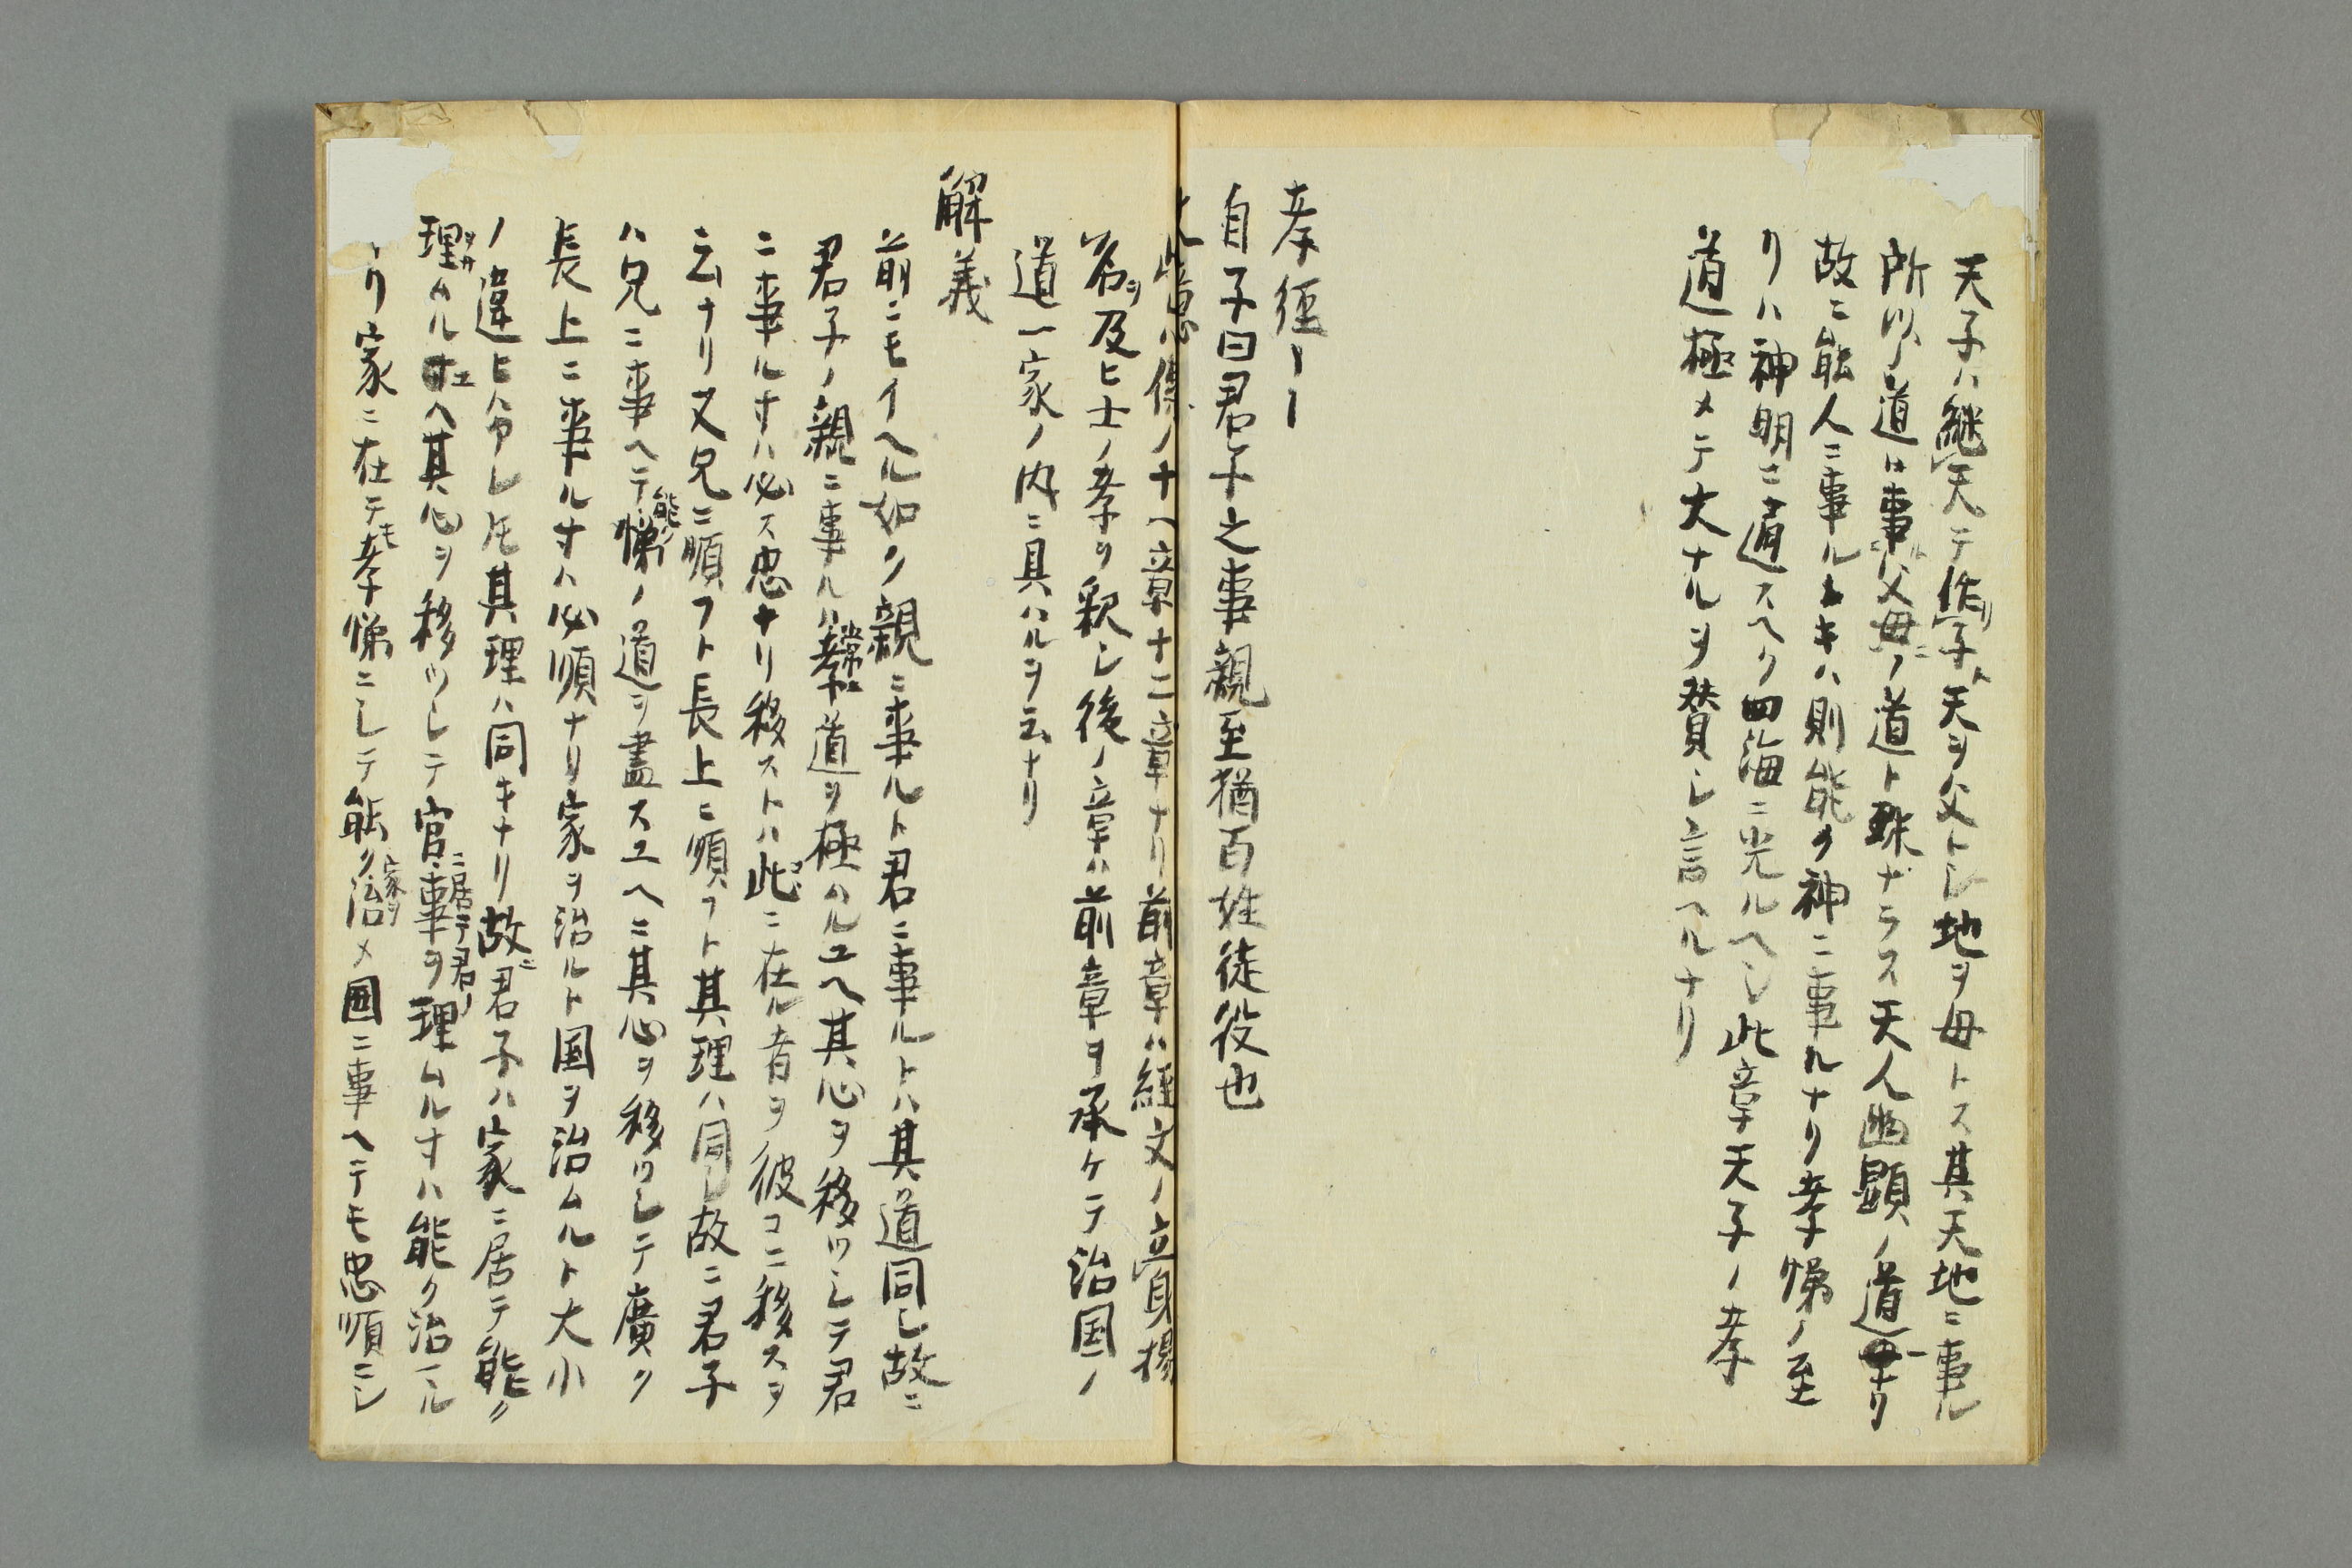 天子ハ継天テ作子ト天ヲ父トシ地ヲ母トス其天地ニ事ル
所以ノ道ハ事父母ニノ道ト殊ナラス天人幽顕ノ道ナリ
故ニ能人ニ事ルトキハ則能ク神ニ事ルナリ孝悌ノ至
リハ神明ニ通スヘク四海ニ光ルヘシ此章天子ノ孝
道極メテ大ナルヲ賛シ言ヘルナリ
孝経ーー
自子曰君子之事親至猶百姓徒役也
此意ハ傳ノ十ヘ章十二章ナリ前章ハ経文ノ立身揚
名ヲ及ヒ士ノ孝ヲ釈シ後ノ章ハ前章ヲ承ケテ治国ノ
道一家ノ内ニ具ハルヲ云ナリ
解義
前ニモイヘル如ク親ニ事ルト君ニ事ルトハ其道同シ故ニ
君子ノ親ニ事ルハ常ニ孝道ヲ極ハルユヘ其心ヲ移ツシテ君
ニ事ル寸ハ必ス忠ナリ移ストハ此ニ在ル者ヲ彼コニ移スヲ
云ナリ又兄ニ順フト長上ニ順フト其理ハ同シ故ニ君子
ハ兄ニ事ヘテ能ク悌ノ道ヲ盡スユヘニ其心ヲ移ツシテ廣ク
長上ニ事ル寸ハ必順ナリ家ヲ治ルト国ヲ治ムルト大小
ノ違ヒハ有レ𪜈其理ハ同キナリ故ニ君子ハ家ニ居テ能ク
理ムルユヘ其心ヲ移ツシテ官ニ居テ君ノ事ヲ理ムル寸ハ能ク治ル
リ家ニ在テモ孝悌ニシテ能ク家ヲ治メ国ニ事ヘテモ忠順ニシ